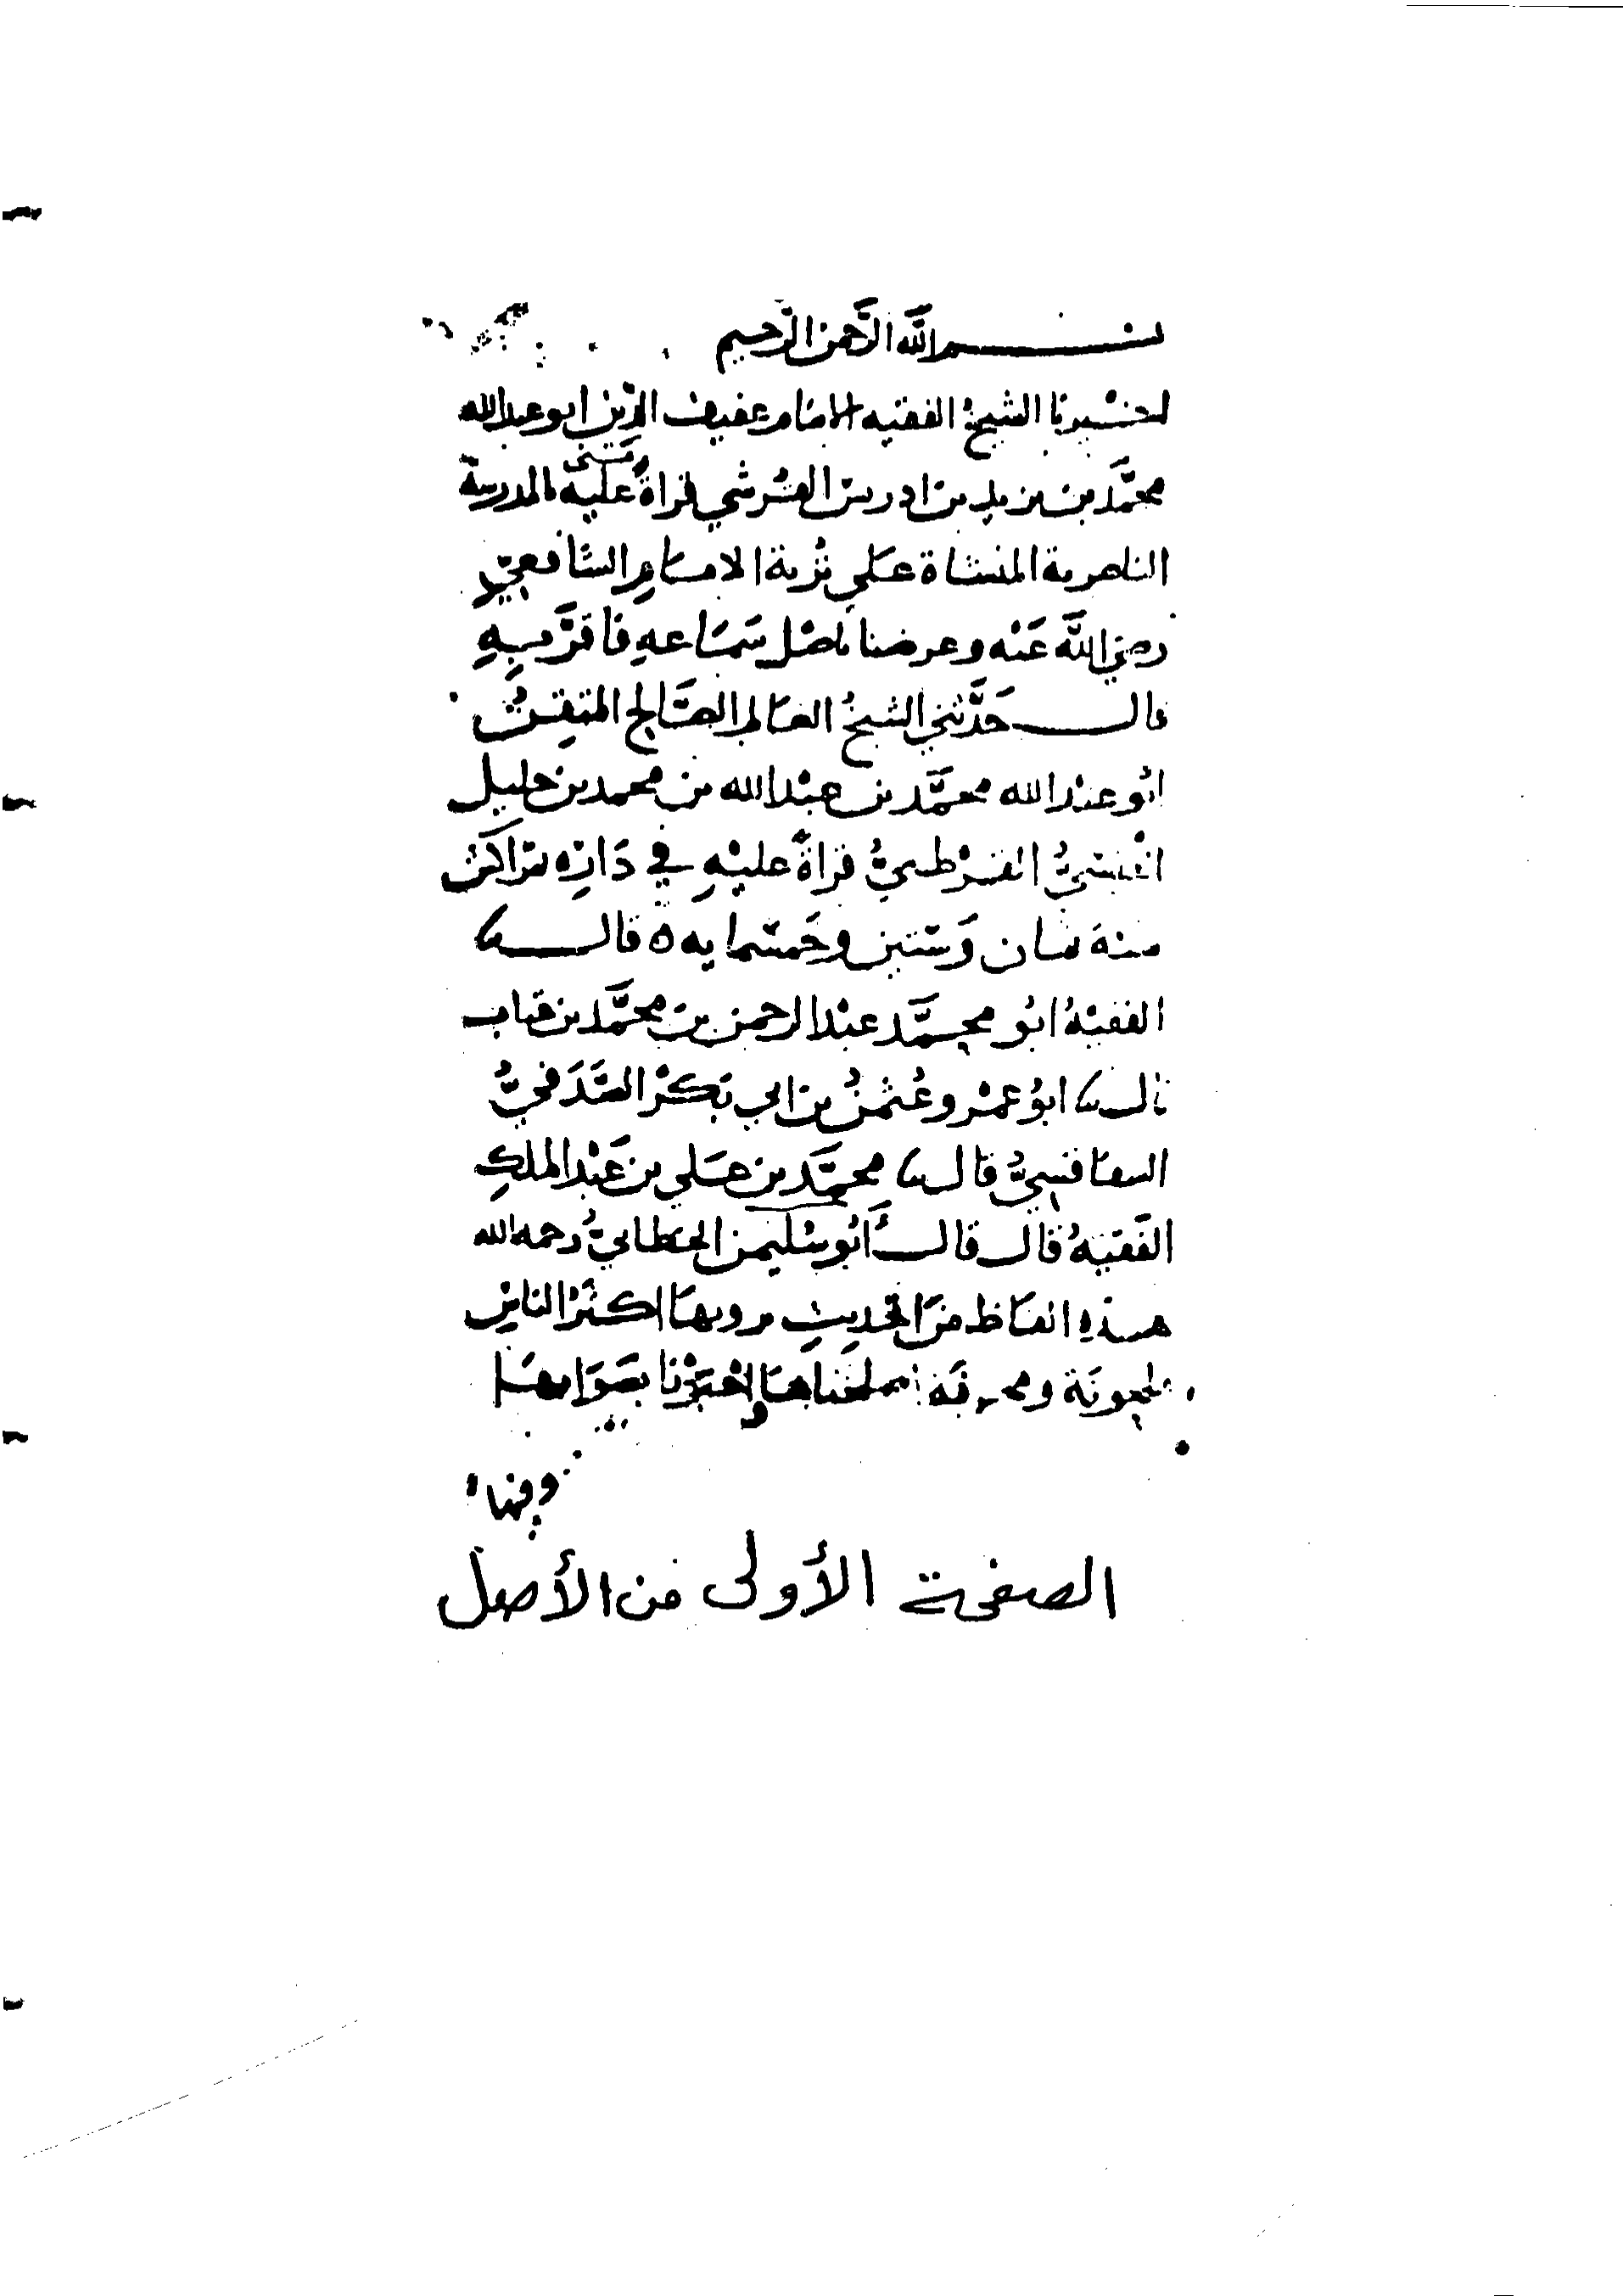 بسم الله الرَّحمن الرَّحيم
اخبرنا الشيخُ الفقيه الامام عفيف الدِّين ابو عبد الله
محمَّد بن يزيد بن ادريس القُرشي قراةً عليه بالمدرسة
الناصرية المنشاة على تُربة الامام الشافعيّ
رضي الله عَنْه وعرضنا باصْل سَمَاعهِ فاقرَّ بِهِ
قال حَدَّثني الشيخُ العالم الصَّالح المتقِن
ابُو عبْد الله محمَّد بن عبْد الله بن محمد بن خليل
القيسيُّ القرْطبيُّ قراةً عليْهِ في دَارِه بمراكش
سنة ثمان وَستين وخَمسمايه ٥ قال نا
الفقيْهُ ابُو محمَّد عبْد الرحمن بن محمَّد بن عتاب
قال نا ابوُ عمْرو عُثمٰنُ بن ابي بَكْر الصَّدَفيُّ
السفاقسيُّ قال نا محمَّد بن عَلي بن عَبْد الملكِ
الفَقيْهُ قال قال أَبُو سُليمن الخطابيُّ رحمه الله
هذهِ الفاظ منَ الحديثِ يرويها اكثَرُ الناسِ
ملحونَة ومحرفَة اصلحناها واخبَرْنا بصَوَابهَا
وفيها
الصفحة الأولى من الأصل